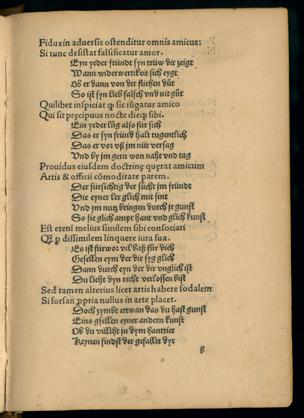 Fidus in adversis ostenditur omnis amicus:
Si tunc desistat falsificatur amor.
Eyn yeder fründt syn trüw dir zeigt
Wann widerwertikeit sich eygt
Ob er dann von dir fliehen düt
So ist syn lieb falsch vnd nit güt
Quilibet inspiciat ꝙ sic iũgatur amico
Qui sit precipuus nocte dieqꝫ sibi.
Ein yeder lüg also für sich
Das er syn fründ halt tugentlich
Das er vor vß jm nüt versag
Vnd by jm gern won naht vnd tag
Prouidus eiusdem doctrine querat amicum
Artis & officii cõmoditate parem.
Der fürsichtig der sücht jm fründt
Die eyner ler glich mit sint
Vnd jm nutz bringen durch jr gunst
So sie glich ampt hant vnd glich kunst
Est etenĩ melius similem sibi consociari
ꝙ̃ dissimilem linquere iura sua.
Es ist fürwor vil baß für dich
Gesellen eym der dir syg glich
Dann durch eyn der dir vnglich ist
Du licht dyn recht verlossen bist
Sed tamen alterius licet artis habere sodalem
Si forsan ꝓpria nullus in arte placet.
Doch zymbt ettwan das du hast gunst
Eins gsellen eyner andern kunst
Ob du villiht in dym hantier
Keynen findst der gefallet dyr